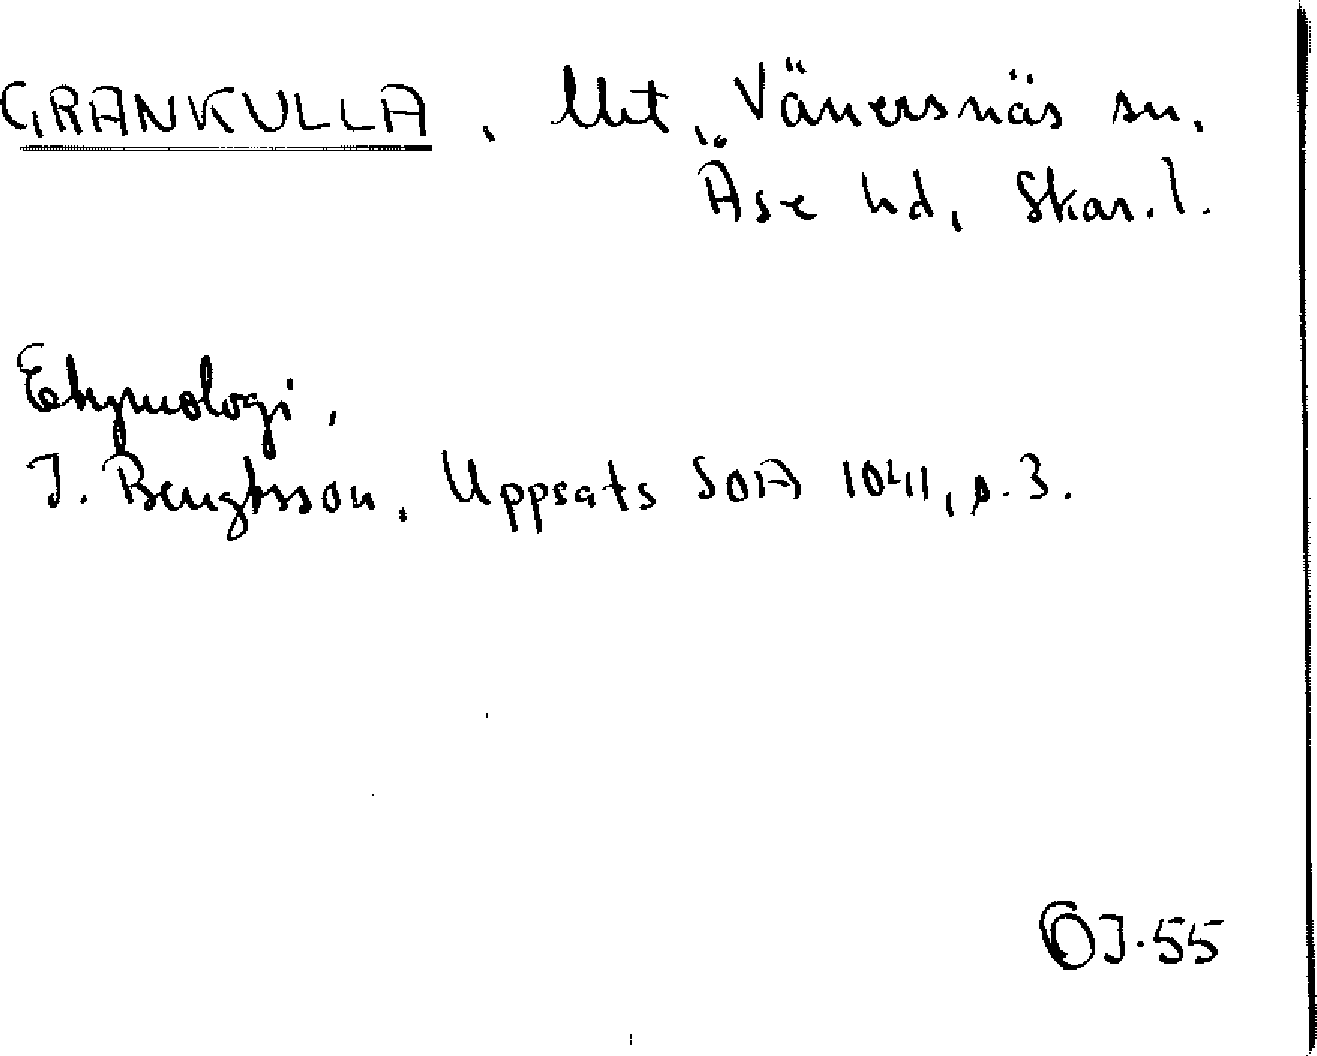 GRANKULLA, lht, Vänersnäs sn.
Åse hd, Skar. l.
Etymologi.
J. Bengtsson, Uppsats SOA 1041, s. 3.
OJ. 55